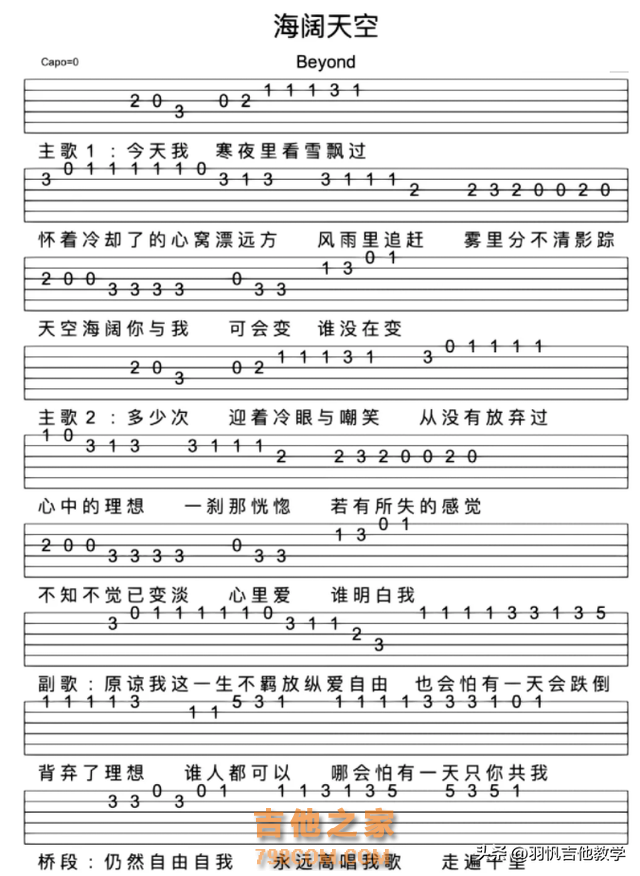 海阔天空
Beyond
Capo=0
2 0 3 0 2 1 1 1 3 1
主歌1：今天我 寒夜里看雪飘过
3 0 1 1 1 1 1 0 3 1 3 3 1 1 1 2 2 3 2 0 0 2 0
怀着冷却了的心窝漂远方 风雨里追赶 雾里分不清影踪
2 0 0 3 3 3 3 0 3 3 1 3 0 1
天空海阔你与我 可会变 谁没在变
2 0 3 0 2 1 1 1 3 1 3 0 1 1 1 1
主歌2：多少次 迎着冷眼与嘲笑 从没有放弃过
1 0 3 1 3 3 1 1 1 2 2 3 2 0 0 2 0
心中的理想 一刹那恍惚 若有所失的感觉
2 0 0 3 3 3 3 0 3 3 1 3 0 1
不知不觉已变淡 心里爱 谁明白我
3 0 1 1 1 1 1 0 3 1 1 2 3 1 1 1 1 3 3 1 3 5
副歌：原谅我这一生不羁放纵爱自由 也会怕有一天会跌倒
1 1 1 1 3 1 1 5 3 1 1 1 1 1 3 3 3 1 0 1
背弃了理想 谁人都可以 哪会怕有一天只你共我
3 3 0 3 0 1 1 1 3 1 3 5 5 3 5 1
吉他之家
798COM.COM
桥段：仍然自由自我 永远高唱我歌 走遍千里
头条@羽帆吉他教学